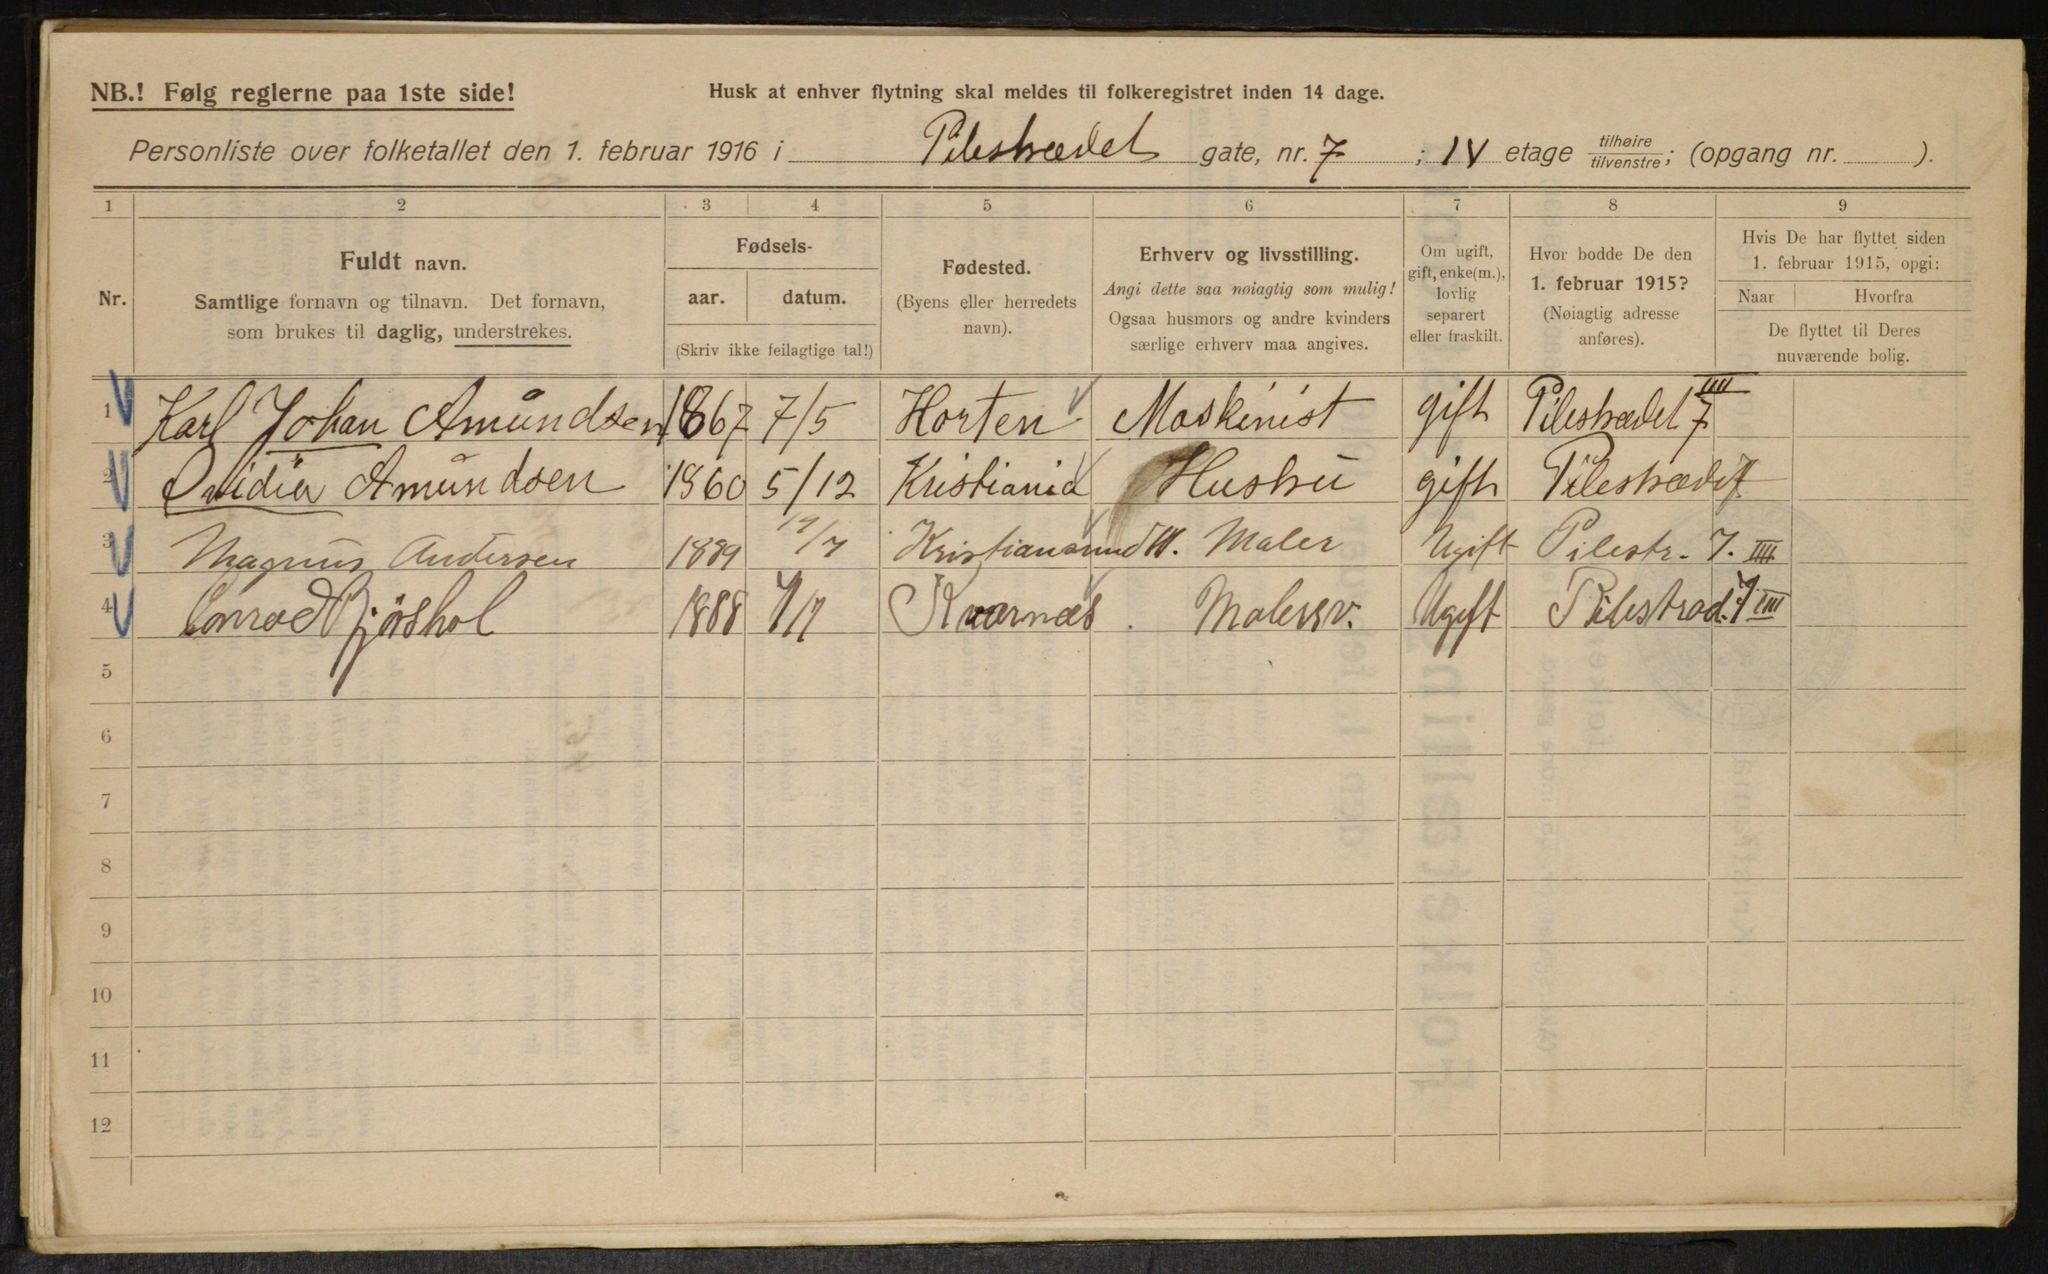 NB.! Følg reglerne paa 1ste side!
Husk at enhver flytning skal meldes til folkeregistret inden 14 dage.
Personliste over folketallet den 1. februar 1916 i Pilestrædet gate, nr. 7 ; IV etage tilhøire/tilvenstre; (opgang nr. ).
1 2 3 4 5 6 7 8 9
Nr.
Fuldt navn.
Samtlige fornavn og tilnavn. Det fornavn,
som brukes til daglig, understrekes.
Fødsels-
aar. datum.
(Skriv ikke feilagtige tal!)
Fødested.
(Byens eller herredets
navn).
Erhverv og livsstilling.
Angi dette saa nøiagtig som mulig!
Ogsaa husmors og andre kvinders
særlige erhverv maa angives.
Om ugift,
gift, enke(m.),
lovlig
separert
eller fraskilt.
Hvor bodde De den
1. februar 1915?
(Nøiagtig adresse
anføres).
Hvis De har flyttet siden
1. februar 1915, opgi:
Naar Hvorfra
De flyttet til Deres
nuværende bolig.
1 Karl Johan Amundsen 1867 7/5 Horten Maskinist gift Pilestrædet 7 IIII
2 Ovidia Amundsen 1860 5/12 Kristiania Hustru gift Pilestrædet 7
3 Magnus Andersen 1889 19/7 Kristiansund N. Maler Ugift Pilestr. 7. IIII
4 Conrad Bjøshol 1888 1/7 Kvarnes Malersv. Ugift Pilestræd. 7 IIII
5
6
7
8
9
10
11
12